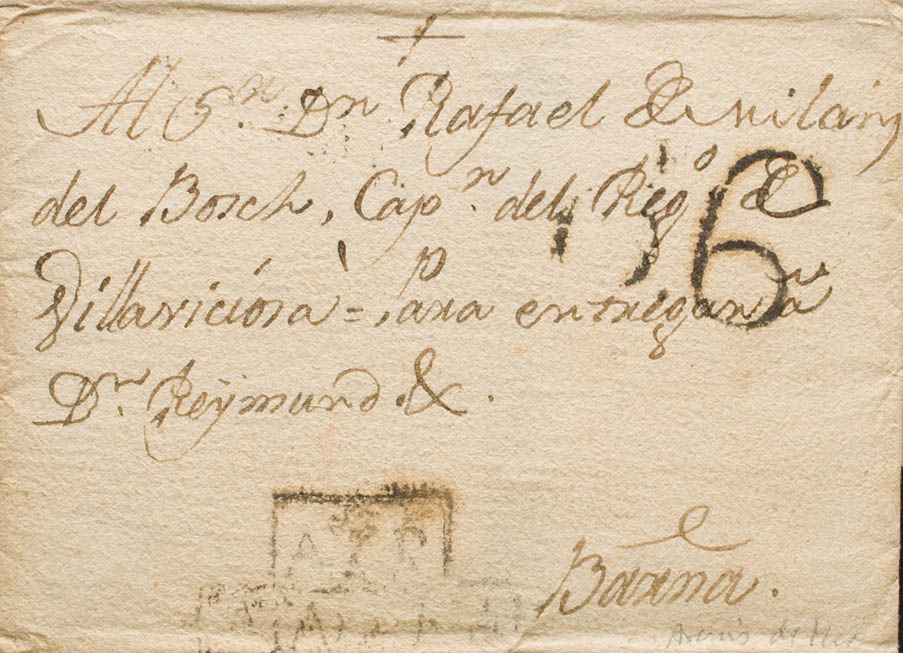 Al Sr. Dn Rafael de Milans
del Bosch, Capn. del Rego. de
Villaviciosa = Para entregar a
Dn. Reymund. &.
6
Barna.